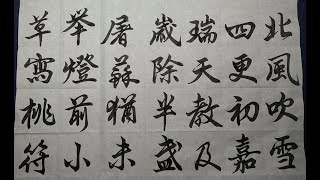 北風吹雪
四更初嘉
瑞天教及
歲除半盞
屠蘇猶未
举燈前小
草寫桃符